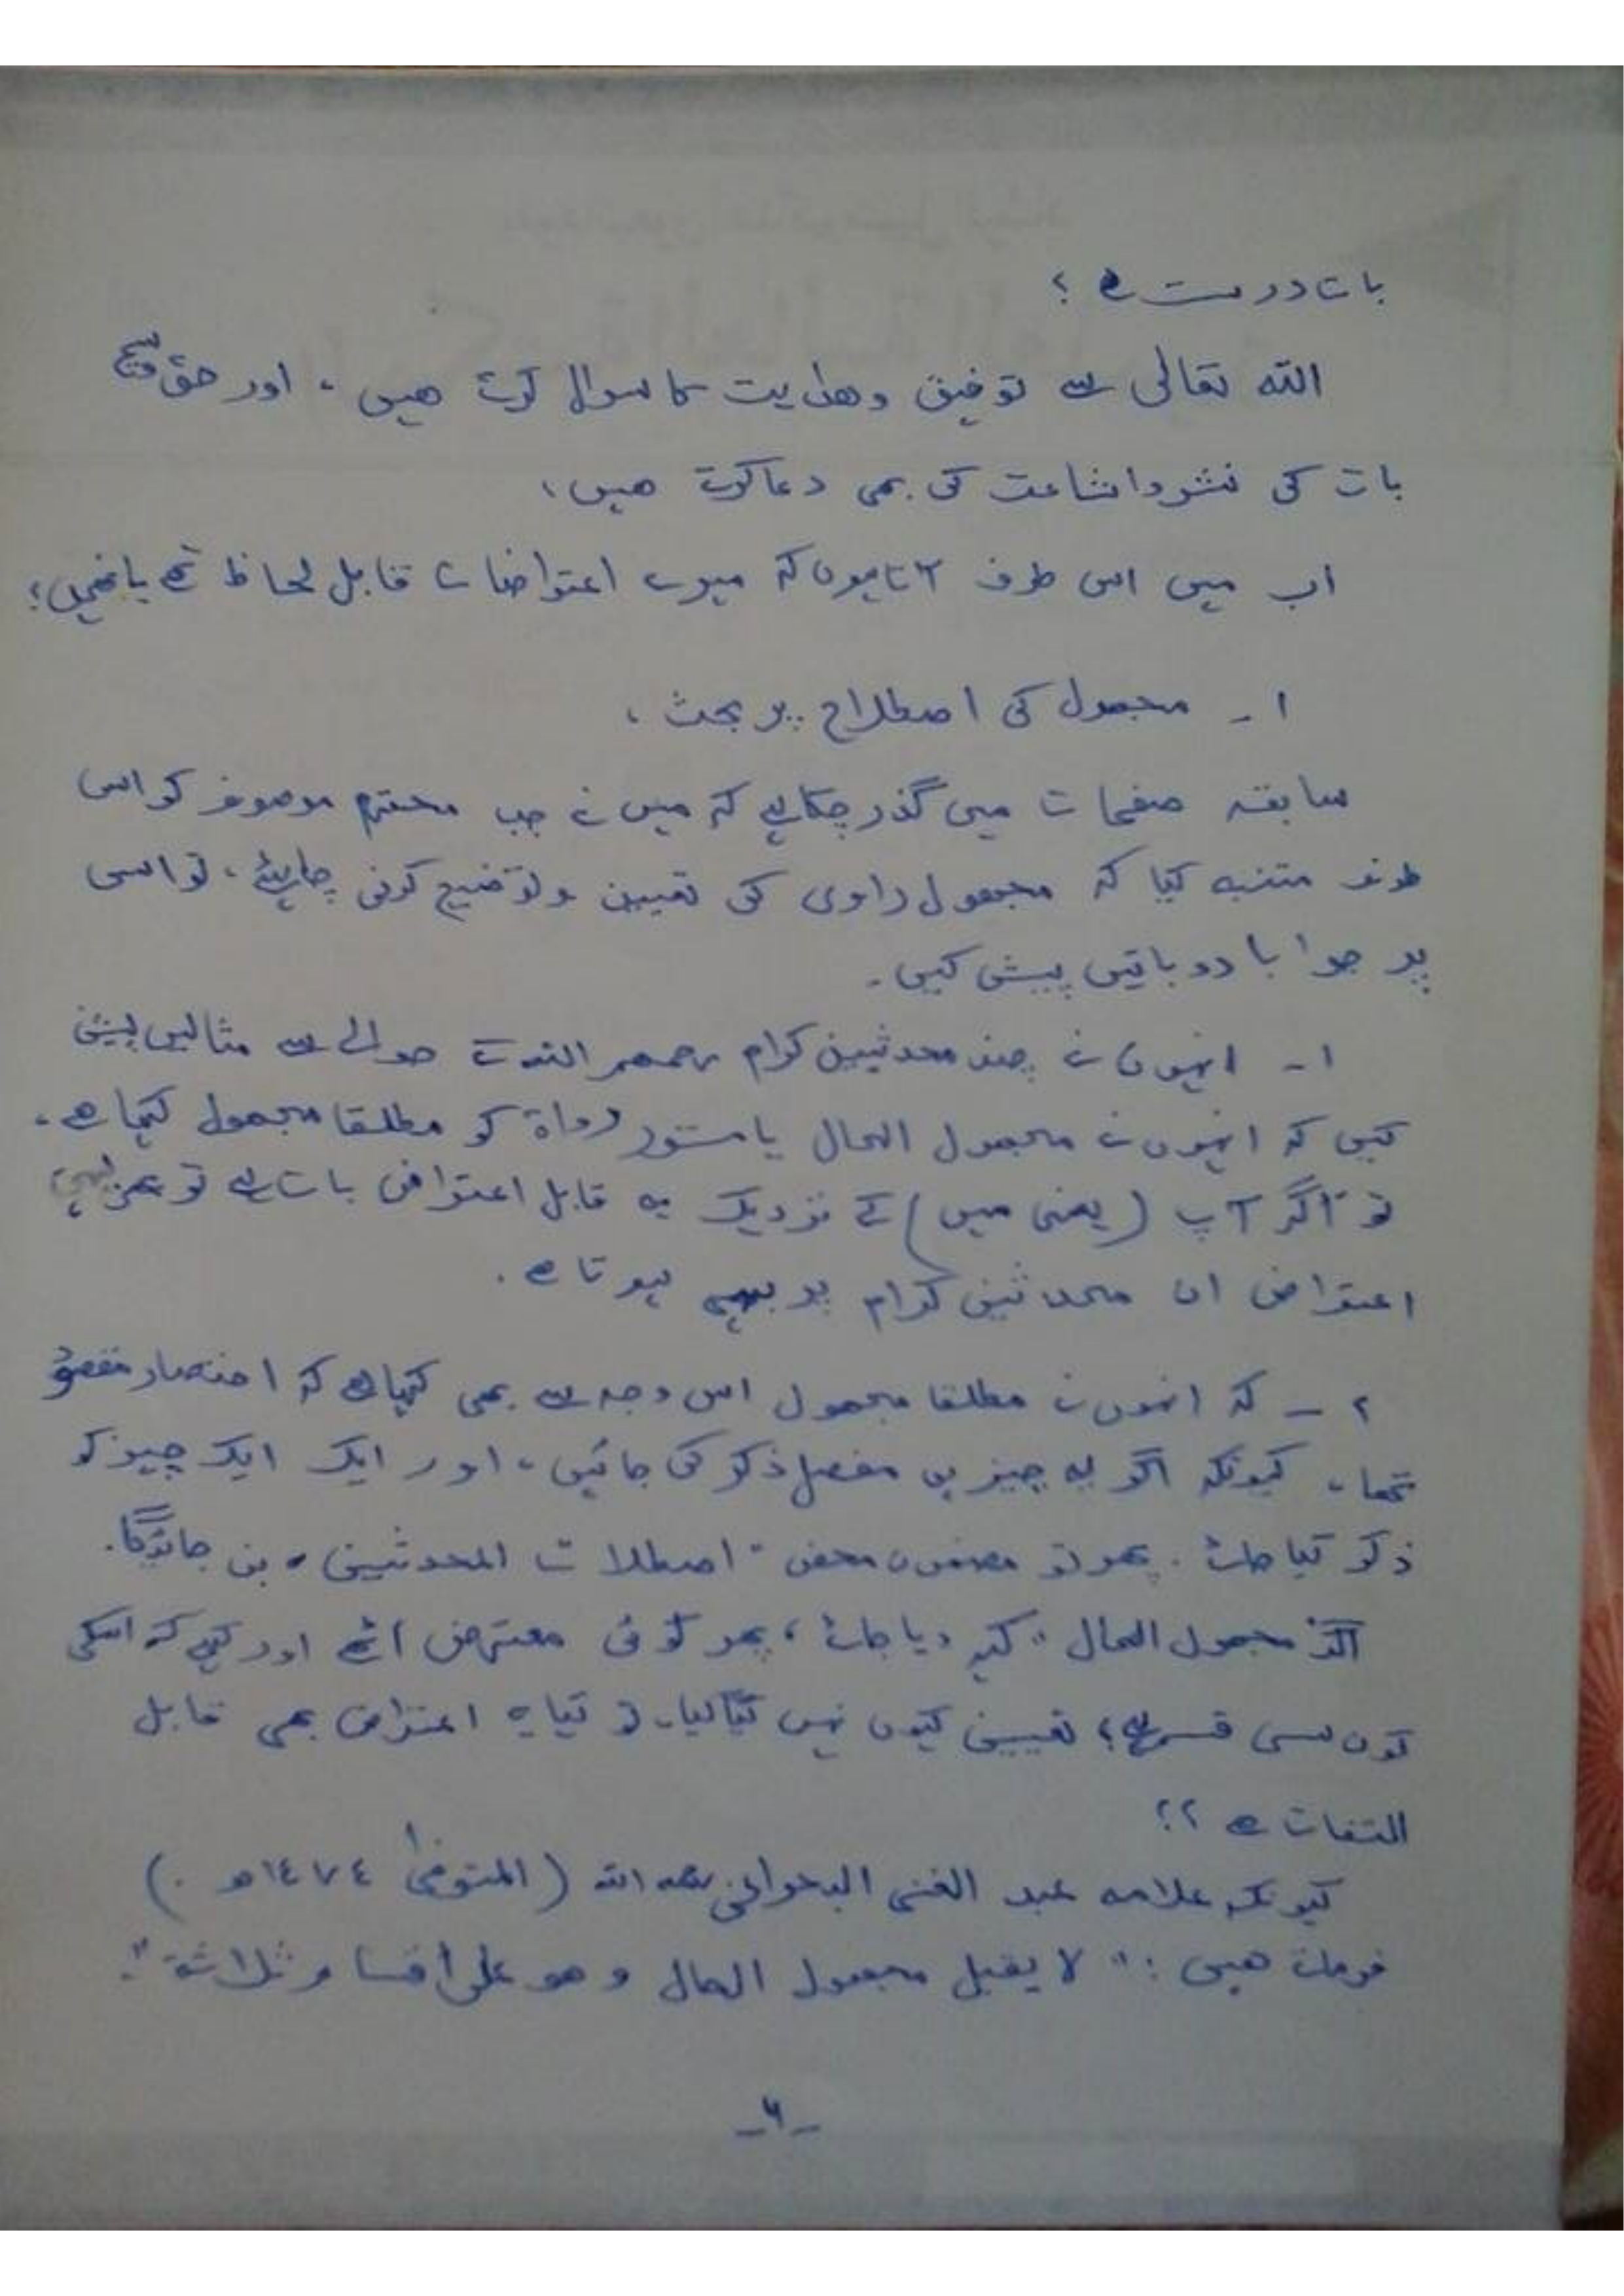 بات درست ہے ؟
اللہ تعالی سے توفیق وھدایت کا سوال کرتے ھیں ، اور حق
بات کی نشر واشاعت کی بھی دعا کرتے ھیں ،
اب میں اس طرف آتا ہوں کہ میرے اعتراضات قابل لحاظ تھے یا نھیں ؛
۱ - مجھول کی اصطلاح پر بحث ،
سابقہ صفحات میں گذر چکا ہے کہ میں نے جب محترم موصوف کو اس
طرف متنبہ کیا کہ مجھول راوی کی تعیین وتوضیح کرنی چاہئے ، تو اسی
پر جوابا دو باتیں پیش کیں ۔
۱ - انہوں نے چند محدثین کرام رحمھم اللہ کے حوالے سے مثالیں پیش
کیں کہ انہوں نے مجھول الحال یا مستور رواۃ کو مطلقا مجھول کہا ھے ۔
تو اگر آپ (یعنی میں) کے نزدیک یہ قابل اعتراض بات ہے تو پھر یہی
اعتراض ان محدثین کرام پر بھی ہوتا ھے ۔
۲ - کہ انہوں نے مطلقا مجھول اس وجہ سے بھی کہا ہے کہ اختصار مقصود
تھا ، کیونکہ اگر یہ چیزیں مفصل ذکر کی جائیں ، اور ایک ایک چیز کو
ذکر کیا جائے ۔ پھر تو مضمون محض " اصطلاحات المحدثین " بن جائیگا .
اگر مجھول الحال " کہہ دیا جائے ، پھر کوئی معترض اٹھے اور کہے کہ اسکی
کون سی قسم ہے ؟ تعیین کیوں نہیں کیا گیا ۔ تو کیا یہ اعتراض بھی قابل
التفات ھے ؟؟
کیونکہ علامہ عبد الغنی البحرانی رحمہ اللہ (المتوفی ١١٧٤ھ .)
فرماتے ھیں : " لا یقبل مجھول الحال و ھو علی أقسام ثلاثة " .
- ٦ -